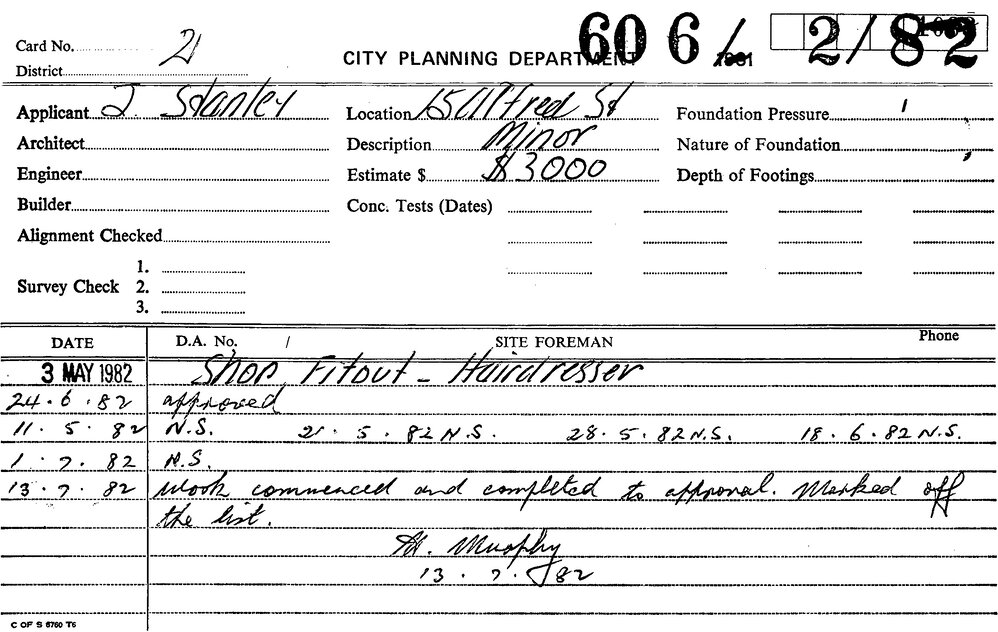 606/ 2/82
Card No. 21 CITY PLANNING DEPARTMENT 1981
District
Applicant J. Stanley Location 15 Alfred St Foundation Pressure
Architect Description Minor Nature of Foundation
Engineer Estimate $ $3000 Depth of Footings
Builder Conc. Tests (Dates)
Alignment Checked
1.
Survey Check 2.
3.
DATE D.A. No. / SITE FOREMAN Phone
3 MAY 1982 Shop Fitout - Hairdresser
24.6.82 approved
11.5.82 N.S. 21.5.82 N.S. 28.5.82 N.S. 18.6.82 N.S.
1.7.82 N.S.
13.7.82 Work commenced and completed to approval. Marked off
the list.
Murphy
13.7.82
C OF S 6760 T6